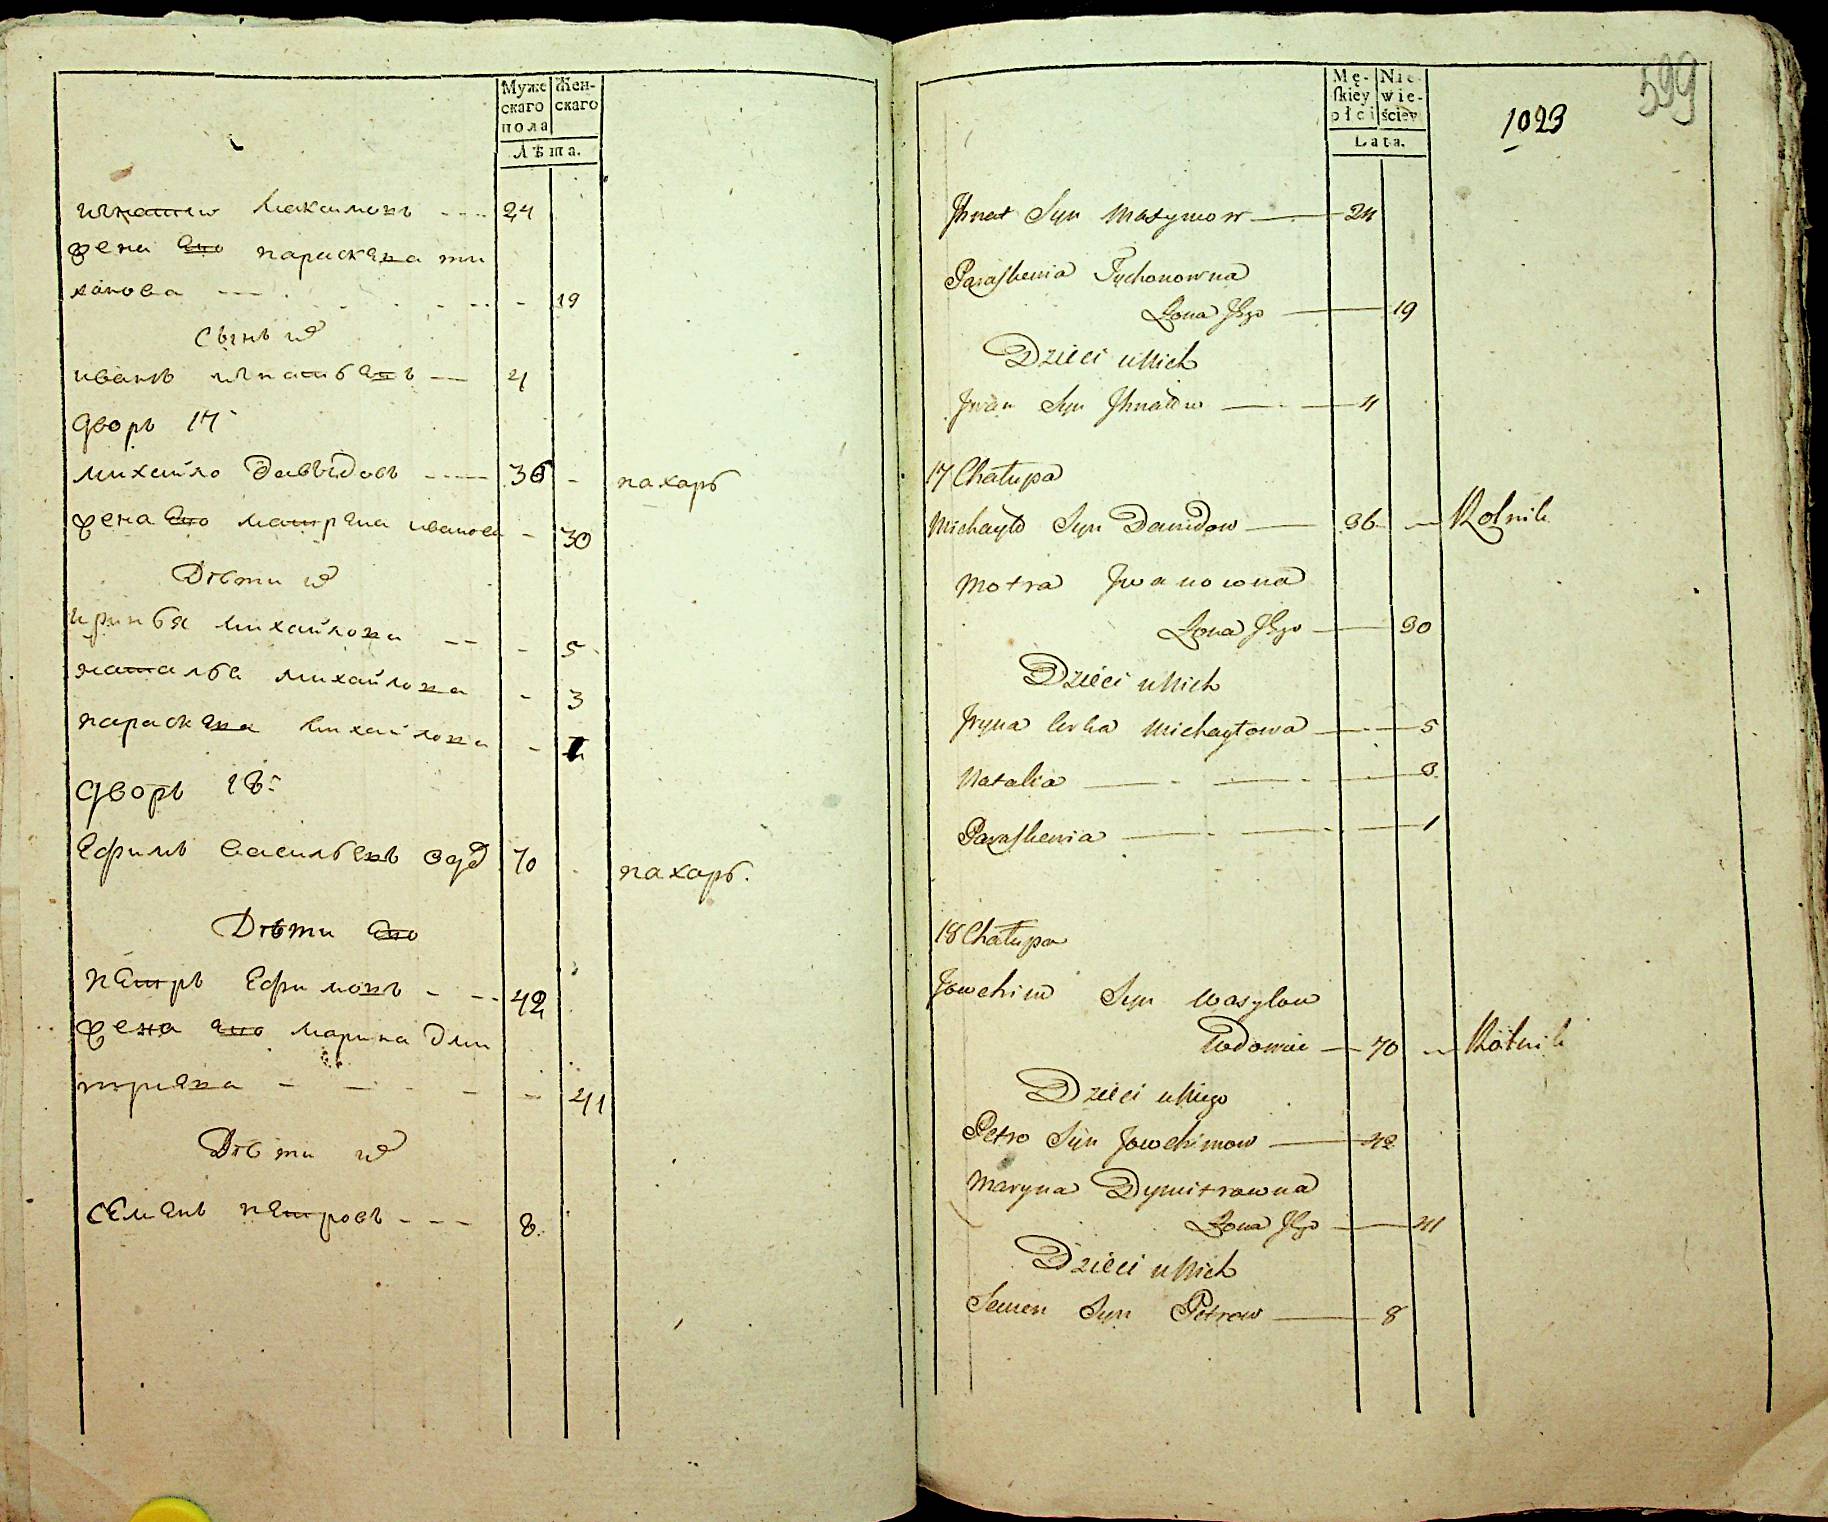 Муже
скаго
пола
Жен-
скаго
Лѣта.
игнатіи Максимовъ ---- 24
жена его параскева ти
хонова --- 19
Сынъ их
иванъ игнатьевъ -- 4
дворъ 17
михайло давыдовъ ---- 36 - пахарь
жена его матрена иванова - 30
Дѣти их
иринья михайлова -- - 5
наталья михайлова - 3
параскева михайлова - 1
дворъ 18:
ефимъ васильевъ вдд 70 пахарь.
Дѣти его
петръ ефимовъ - -- 42
жена его марина дми
триева - - - - 41
Дѣти их
семенъ петровъ --- 8.
Mę-
skiey
płci
Nie-
wie-
ściey
Lata.
1023
599
Jhnat Syn Maxymow — 24
Paraskewia Tychonowna
Żona Jego — 19
Dzieci u Nich
Jwan Syn Jhnatow — 4
17 Chałupa
Michayło Syn Dawidow — 36 — Rolnik
Motra Jwanowna
Żona Jego — 30
Dzieci u Nich
Jryna Curka Michayłowa — 5
Natalia — 3
Paraskewia — 1
18 Chałupa
Jowchim Syn Wasylow
Wdowiec — 70 — Rolnik
Dzieci u Niego
Petro Syn Jowchimow — 42
Maryna Dymitrowna
Żona Jego — 41
Dzieci u Nich
Semen Syn Petrow — 8